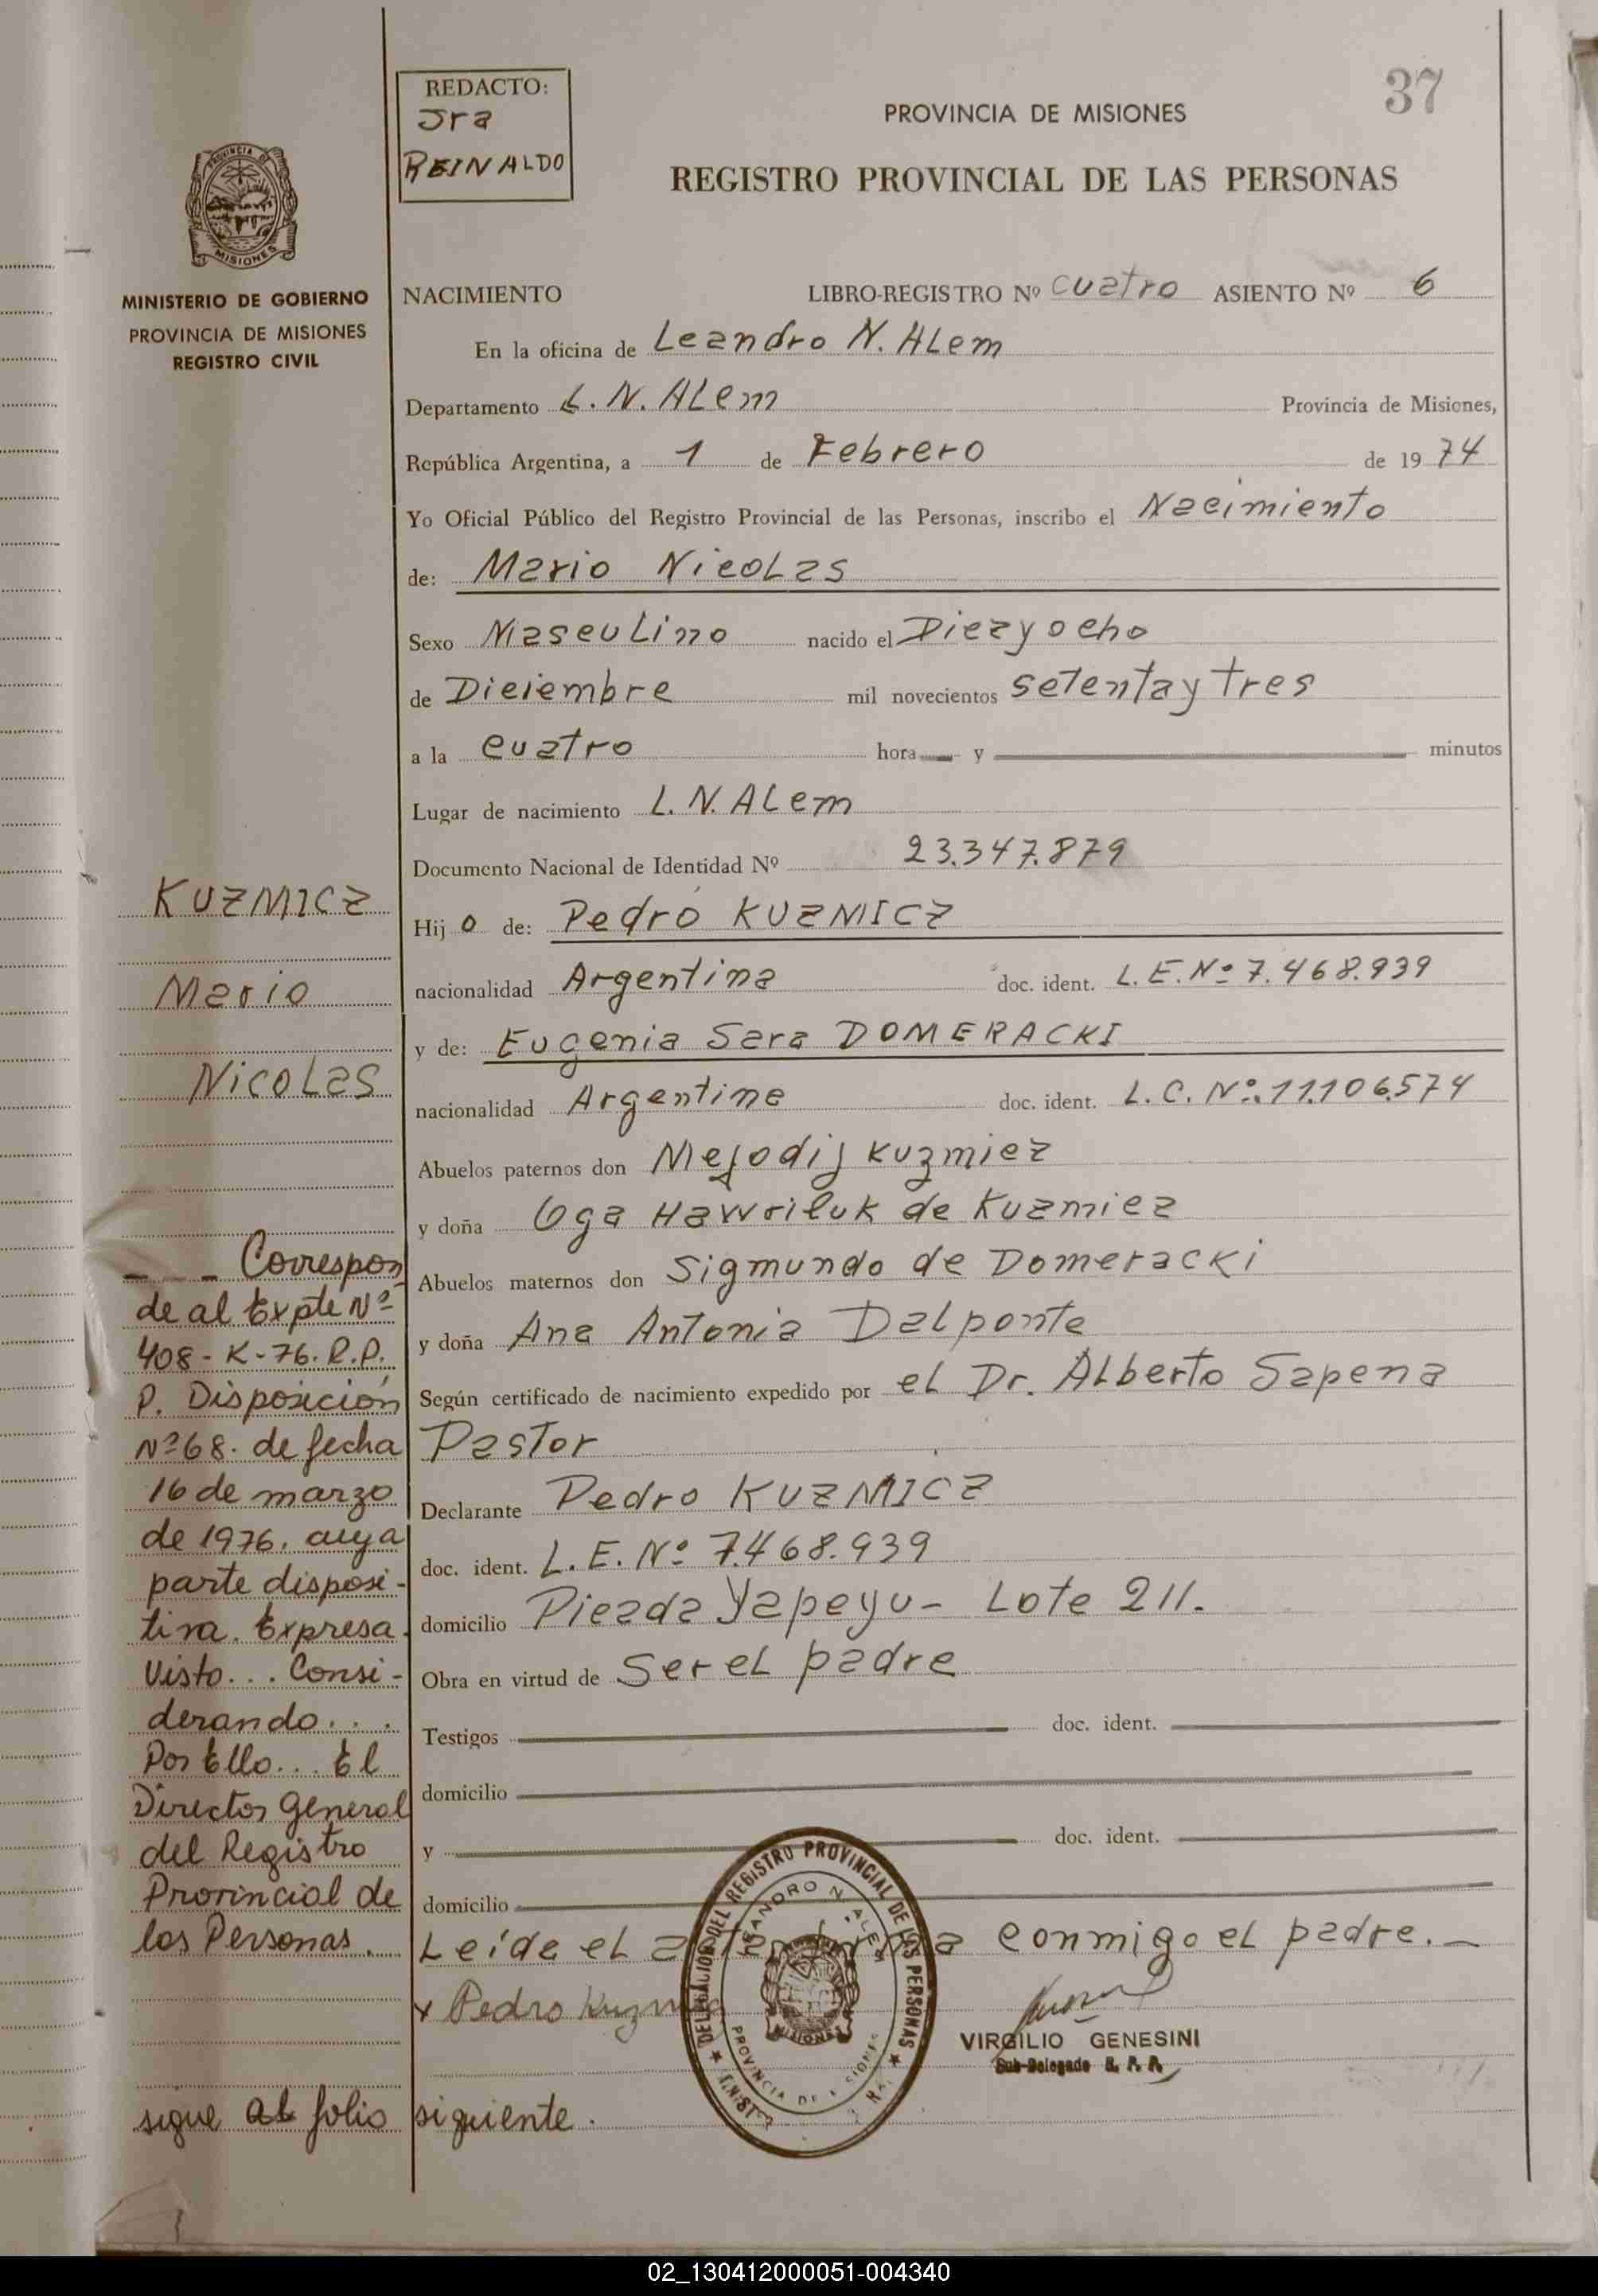 REDACTO:
Jra
REINALDO
37
PROVINCIA DE MISIONES
REGISTRO PROVINCIAL DE LAS PERSONAS
PROVINCIA DE
MISIONES
MINISTERIO DE GOBIERNO
PROVINCIA DE MISIONES
REGISTRO CIVIL
NACIMIENTO LIBRO-REGISTRO Nº cuatro ASIENTO Nº 6
En la oficina de Leandro N. ALem
Departamento L. N. ALem Provincia de Misiones,
República Argentina, a 1 de Febrero de 19 74
Yo Oficial Público del Registro Provincial de las Personas, inscribo el Nacimiento
de: Mario Nicolas
Sexo Masculino nacido el Diezyocho
de Diciembre mil novecientos setentaytres
a la cuatro hora y minutos
Lugar de nacimiento L. N. ALem
Documento Nacional de Identidad Nº 23.347.879
Hij o de: Pedro KUZMICZ
nacionalidad Argentina doc. ident. L. E. Nº 7.468.939
y de: Eugenia Sara DOMERACKI
nacionalidad Argentina doc. ident. L. C. Nº. 11.106.574
Abuelos paternos don Mefodij Kuzmicz
y doña Oga Hawriluk de Kuzmicz
Abuelos maternos don Sigmundo de Domeracki
y doña Ana Antonia Dalponte
Según certificado de nacimiento expedido por el Dr. Alberto Sapena
Pastor
Declarante Pedro KUZMICZ
doc. ident. L. E. Nº 7.468.939
domicilio Picada Yapeyu - Lote 211.
Obra en virtud de Ser el padre
Testigos doc. ident.
domicilio
y doc. ident.
domicilio
Leída el acta firma conmigo el padre.
x Pedro Kuzmicz
VIRGILIO GENESINI
Sub-Delegado R. P. P.
DELEGACION DEL REGISTRO PROVINCIAL DE LAS PERSONAS
LEANDRO N. ALEM
MISIONES
PROVINCIA DE MISIONES
KUZMICZ
Mario
Nicolas
Correspon
de al Expte Nº
408-K-76. R.P.
P. Disposición
Nº 68. de fecha
16 de marzo
de 1976, cuya
parte disposi-
tiva. Expresa.
Visto... Consi-
derando...
Por Ello... El
Director General
del Registro
Provincial de
las Personas.
sigue al folio siguiente.
02_130412000051-004340